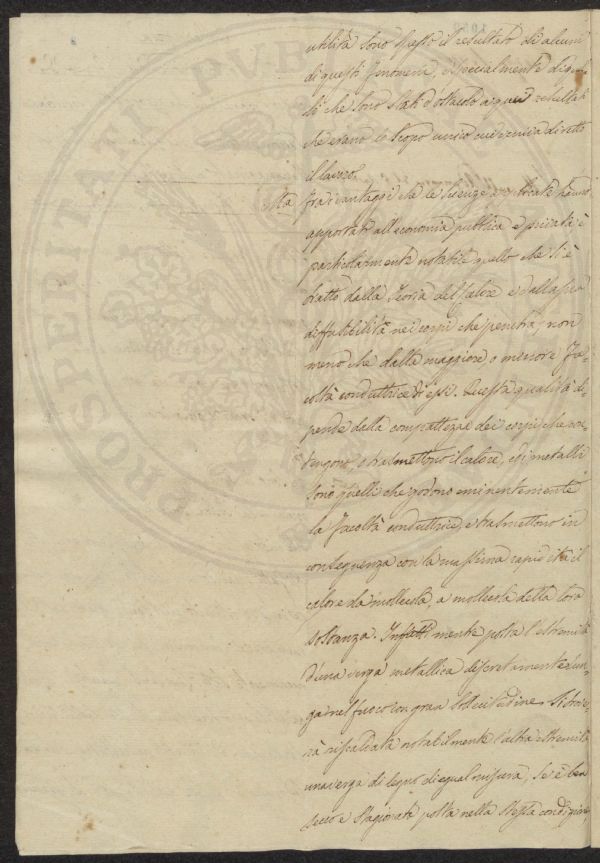 utilità sono spesso il resultato di alcuni
di questi fenomeni, e specialmente di quel-
li che sono stati d'ostacolo a quei resultati
che erano lo scopo unico cui veniva diretto
il lavoro.
Ma fra i vantaggi che le scienze a
apportati all'economia pubblica e privata è
particolarmente notabile quello che si è
tratto dalla Teoria del Calore e dalla sua
diffusibilità nei corpi che penetra, non
meno che dalla maggiore o minore Fa-
coltà conduttrice di essi. Questa qualità di-
pende dalla compattezza dei corpi, che con-
tengono, o trasmettono il calore, ed i metalli
sono quelli che godono eminentemente
la Facoltà conduttrice, e trasmettono in
conseguenza con la massima rapidità il
calore da mollecola, a mollecola della loro
sostanza. Infatti mentre posta l'estremità
d'una verga metallica discretamente lun-
ga nel fuoco con gran sollecitudine si trove-
rà riscaldata notabilmente l'altra estremità
una verga di legno di egual misura, se è ben
secco e stagionato posta nella stessa condizione